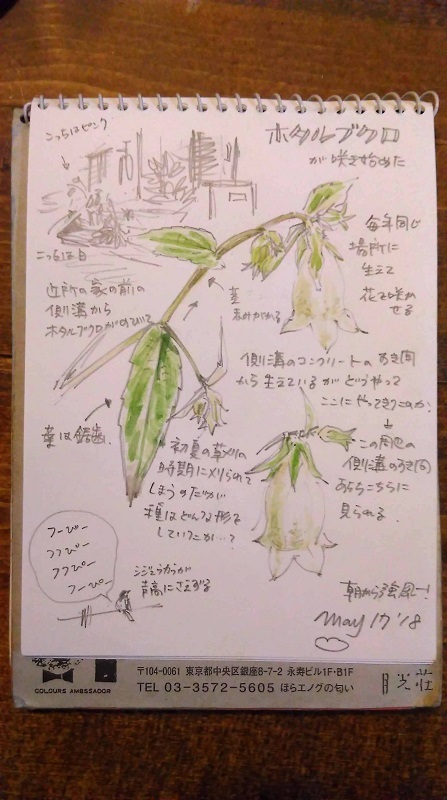 こっちはピンク
ホタルブクロ
が咲き始めた
こっちは白
近所の家の前の
側溝から
ホタルブクロがのびて
毎年同じ
場所に
生えて
花を咲か
せる
茎
赤みがかる
側溝のコンクリートのすき間
から生えているがどうやって
ここにやってきたのか
葉は鋸歯
初夏の草刈の
時期に刈られて
しまうのだが
種はどんな形を
していたか…?
この周辺の
側溝のすき間
あちらこちらに
見られる
ツーピー
ツツピー
ツツピー
ツーピー
シジュウカラが
青高にさえずる
朝から強風ー!
May 17 '18
COLOURS AMBASSADOR
〒104-0061 東京都中央区銀座8-7-2 永寿ビル1F・B1F
TEL 03-3572-5605 ほらエノグの匂い
月光荘